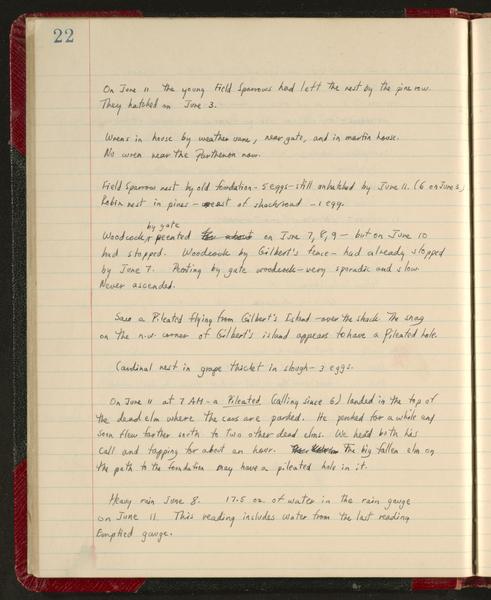 22
On June 11 the young Field Sparrows had left the nest by the pine row.
They hatched on June 3.
Wrens in house by weather vane, near gate, and in martin house.
No wren near the Parthenon now.
Field Sparrow nest by old fondation - 5 eggs - still unhatched by June 11. (6 on June 2)
Robin nest in pines - east of shack road - 1 egg.
by gate
Woodcock peented on June 7, 8, 9 - but on June 10
had stopped. Woodcock by Gilbert's fence - had already stopped
by June 7. Peenting by gate woodcock - very sporadic and slow.
Never ascended.
Saw a Pileated flying from Gilbert's Island - over the shack. The snag
on the n.w. corner of Gilbert's island appears to have a Pileated hole.
Cardinal nest in grape thicket in slough - 3 eggs.
On June 11 at 7 AM - a Pileated (calling since 6) landed in the top of
the dead elm where the cars are parked. He perched for a while and
soon flew farther north to two other dead elms. We heard both his
call and tapping for about an hour. The big fallen elm on
the path to the foundation may have a pileated hole in it.
Heavy rain June 8. 17.5 oz. of water in the rain gauge
on June 11. This reading includes water from the last reading
Emptied gauge.